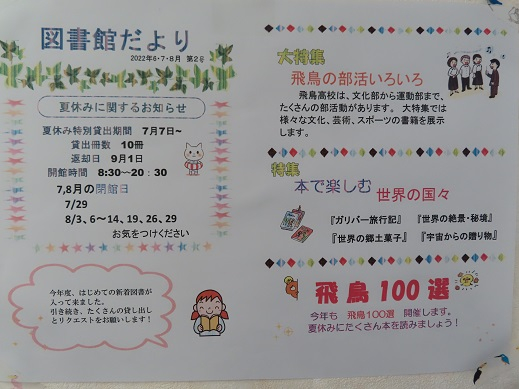 図書館だより
2022年6・7・8月 第2号
夏休みに関するお知らせ
夏休み特別貸出期間 7月7日~
貸出冊数 10冊
返却日 9月1日
開館時間 8:30~20:30
7,8月の閉館日
7/29
8/3、6~14、19、26、29
お気をつけください
今年度、はじめての新着図書が
入って来ました。
引き続き、たくさんの貸し出し
とリクエストをお願いします!
大特集
飛鳥の部活いろいろ
飛鳥高校は、文化部から運動部まで、
たくさんの部活動があります。大特集では
様々な文化、芸術、スポーツの書籍を展
示します。
特集
本で楽しむ 世界の国々
『ガリバー旅行記』 『世界の絶景・秘境』
『世界の郷土菓子』 『宇宙からの贈り物』
飛鳥100選
今年も 飛鳥100選 開催します。
夏休みにたくさん本を読みましょう!